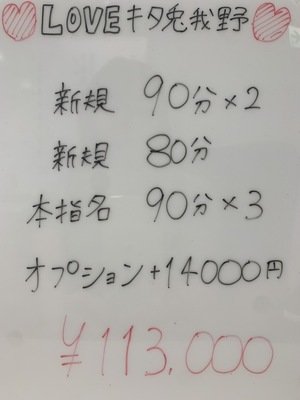 LOVEキタ兎我野
新規 90分×2
新規 80分
本指名 90分×3
オプション+14000円
¥113.000